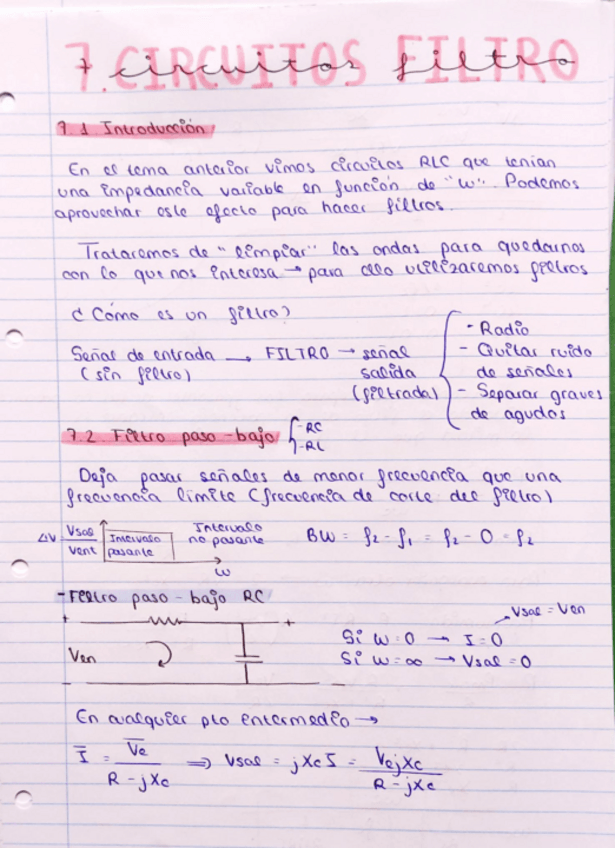 7. CIRCUITOS FILTRO
7.1 Introducción
En el tema anterior vimos circuitos RLC que tenían
una impedancia variable en función de "w". Podemos
aprovechar este efecto para hacer filtros.
Trataremos de "limpiar" las ondas para quedarnos
con lo que nos interesa → para ello utilizaremos filtros
¿Cómo es un filtro?
Señal de entrada → FILTRO → señal
(sin filtro) salida
(filtrada)
- Radio
- Quitar ruido
de señales
- Separar graves
de agudos
7.2 Filtro paso-bajo { -RC
-RL
Deja pasar señales de menor frecuencia que una
frecuencia límite (frecuencia de corte del filtro)
ΔV Vsal/Vent Intervalo pasante Intervalo no pasante w
BW = f2 - f1 = f2 - 0 = f2
- Filtro paso-bajo RC
+ +
Ven
- -
Si w=0 → I=0 → Vsal = Ven
Si w=∞ → Vsal=0
En cualquier pto entermedio →
Ī = V̄e / (R - jXc) ⇒ Vsal = jXc I = VejXc / (R - jXc)